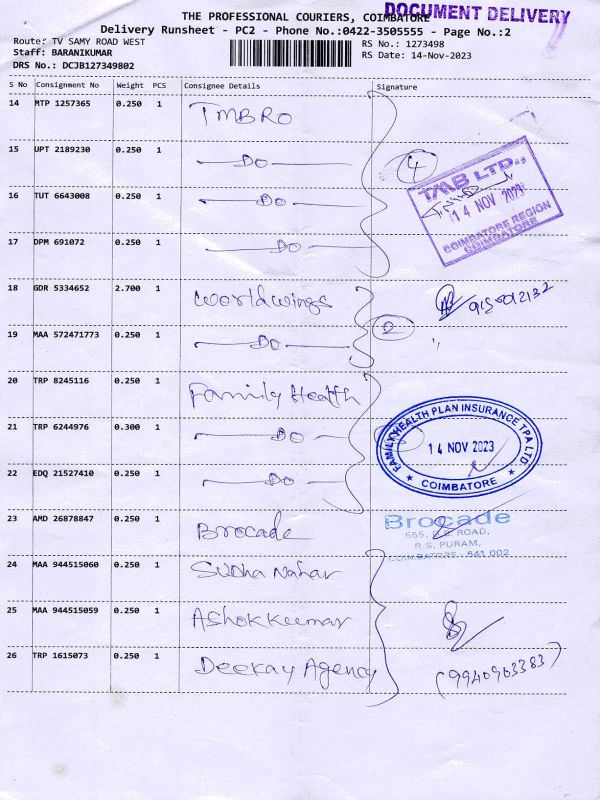 DOCUMENT DELIVERY
THE PROFESSIONAL COURIERS, COIMBATORE
Delivery Runsheet - PC2 - Phone No.:0422-3505555 - Page No.:2
Route: TV SAMY ROAD WEST
RS No.: 1273498
Staff: BARANIKUMAR
RS Date: 14-Nov-2023
DRS No.: DCJB127349802
S No Consignment No Weight PCS Consignee Details Signature
14 MTP 1257365 0.250 1 TMBRO
15 UPT 2189230 0.250 1 DO
4
TMB LTD.,
14 NOV 2023
COIMBATORE REGION
COIMBATORE
16 TUT 6643008 0.250 1 DO
17 DPM 691072 0.250 1 DO
18 GDR 5334652 2.700 1 Worldwings
19 MAA 572471773 0.250 1 DO
2
20 TRP 8245116 0.250 1 Family Health
21 TRP 6244976 0.300 1 DO
FAMILY HEALTH PLAN INSURANCE TPA LTD.
14 NOV 2023
COIMBATORE
22 EDQ 21527410 0.250 1 DO
23 AMD 26878847 0.250 1 Brocade
Brocade
555, D.B. ROAD,
R.S. PURAM,
COIMBATORE - 641 002
24 MAA 944515060 0.250 1 Sudha Nahar
25 MAA 944515059 0.250 1 Ashokkumar
26 TRP 1615073 0.250 1 Deekay Agency
(9940963383)